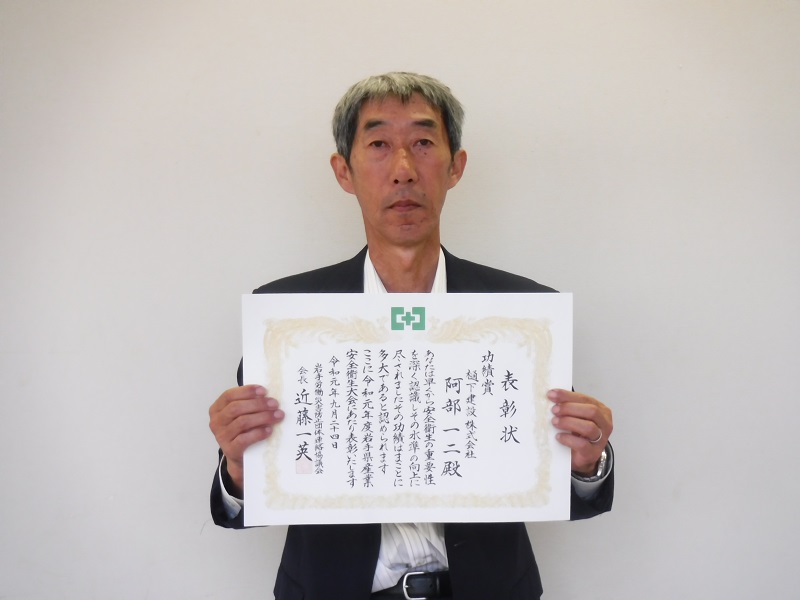 表彰状
功績賞
樋下建設株式会社
阿部一二殿
あなたは早くから安全衛生の重要性
を深く認識しその水準の向上に
尽されましたその功績はまことに
多大であると認められます
ここに令和元年度岩手県産業
安全衛生大会にあたり表彰いたします
令和元年九月二十四日
岩手労働災害防止団体連絡協議会
会長 近藤一英